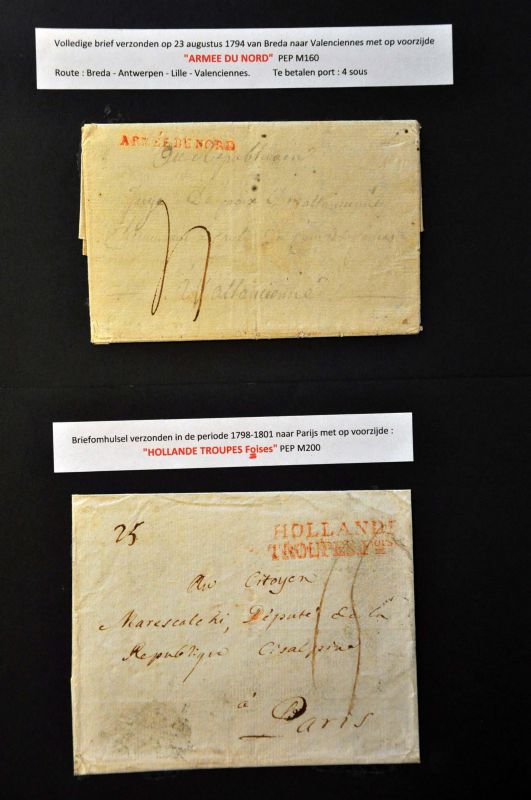 Volledige brief verzonden op 23 augustus 1794 van Breda naar Valenciennes met op voorzijde
"ARMEE DU NORD" PEP M160
Route : Breda - Antwerpen - Lille - Valenciennes. Te betalen port : 4 sous
ARMÉE DU NORD
Briefomhulsel verzonden in de periode 1798-1801 naar Parijs met op voorzijde :
"HOLLANDE TROUPES Foises" PEP M200
25
HOLLANDE
TROUPES
Au Citoyen
Marescalchi, Député de la
République Cisalpine
à
Paris